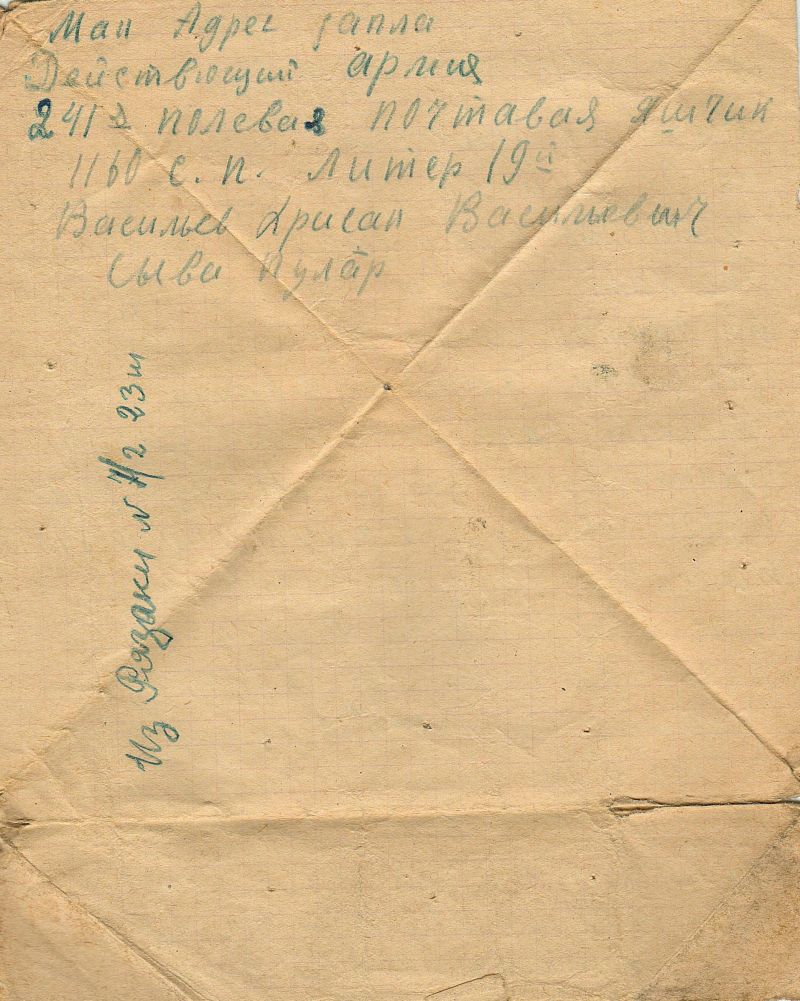 Ман Адрес ҫапла
Действющий армия
241я полевая почтавая яшчик
1160 с. п. Литер 19й
Васильев Хрисан Васильевич
Сыва пулӑр
Из Рязани N 7/2 23ш